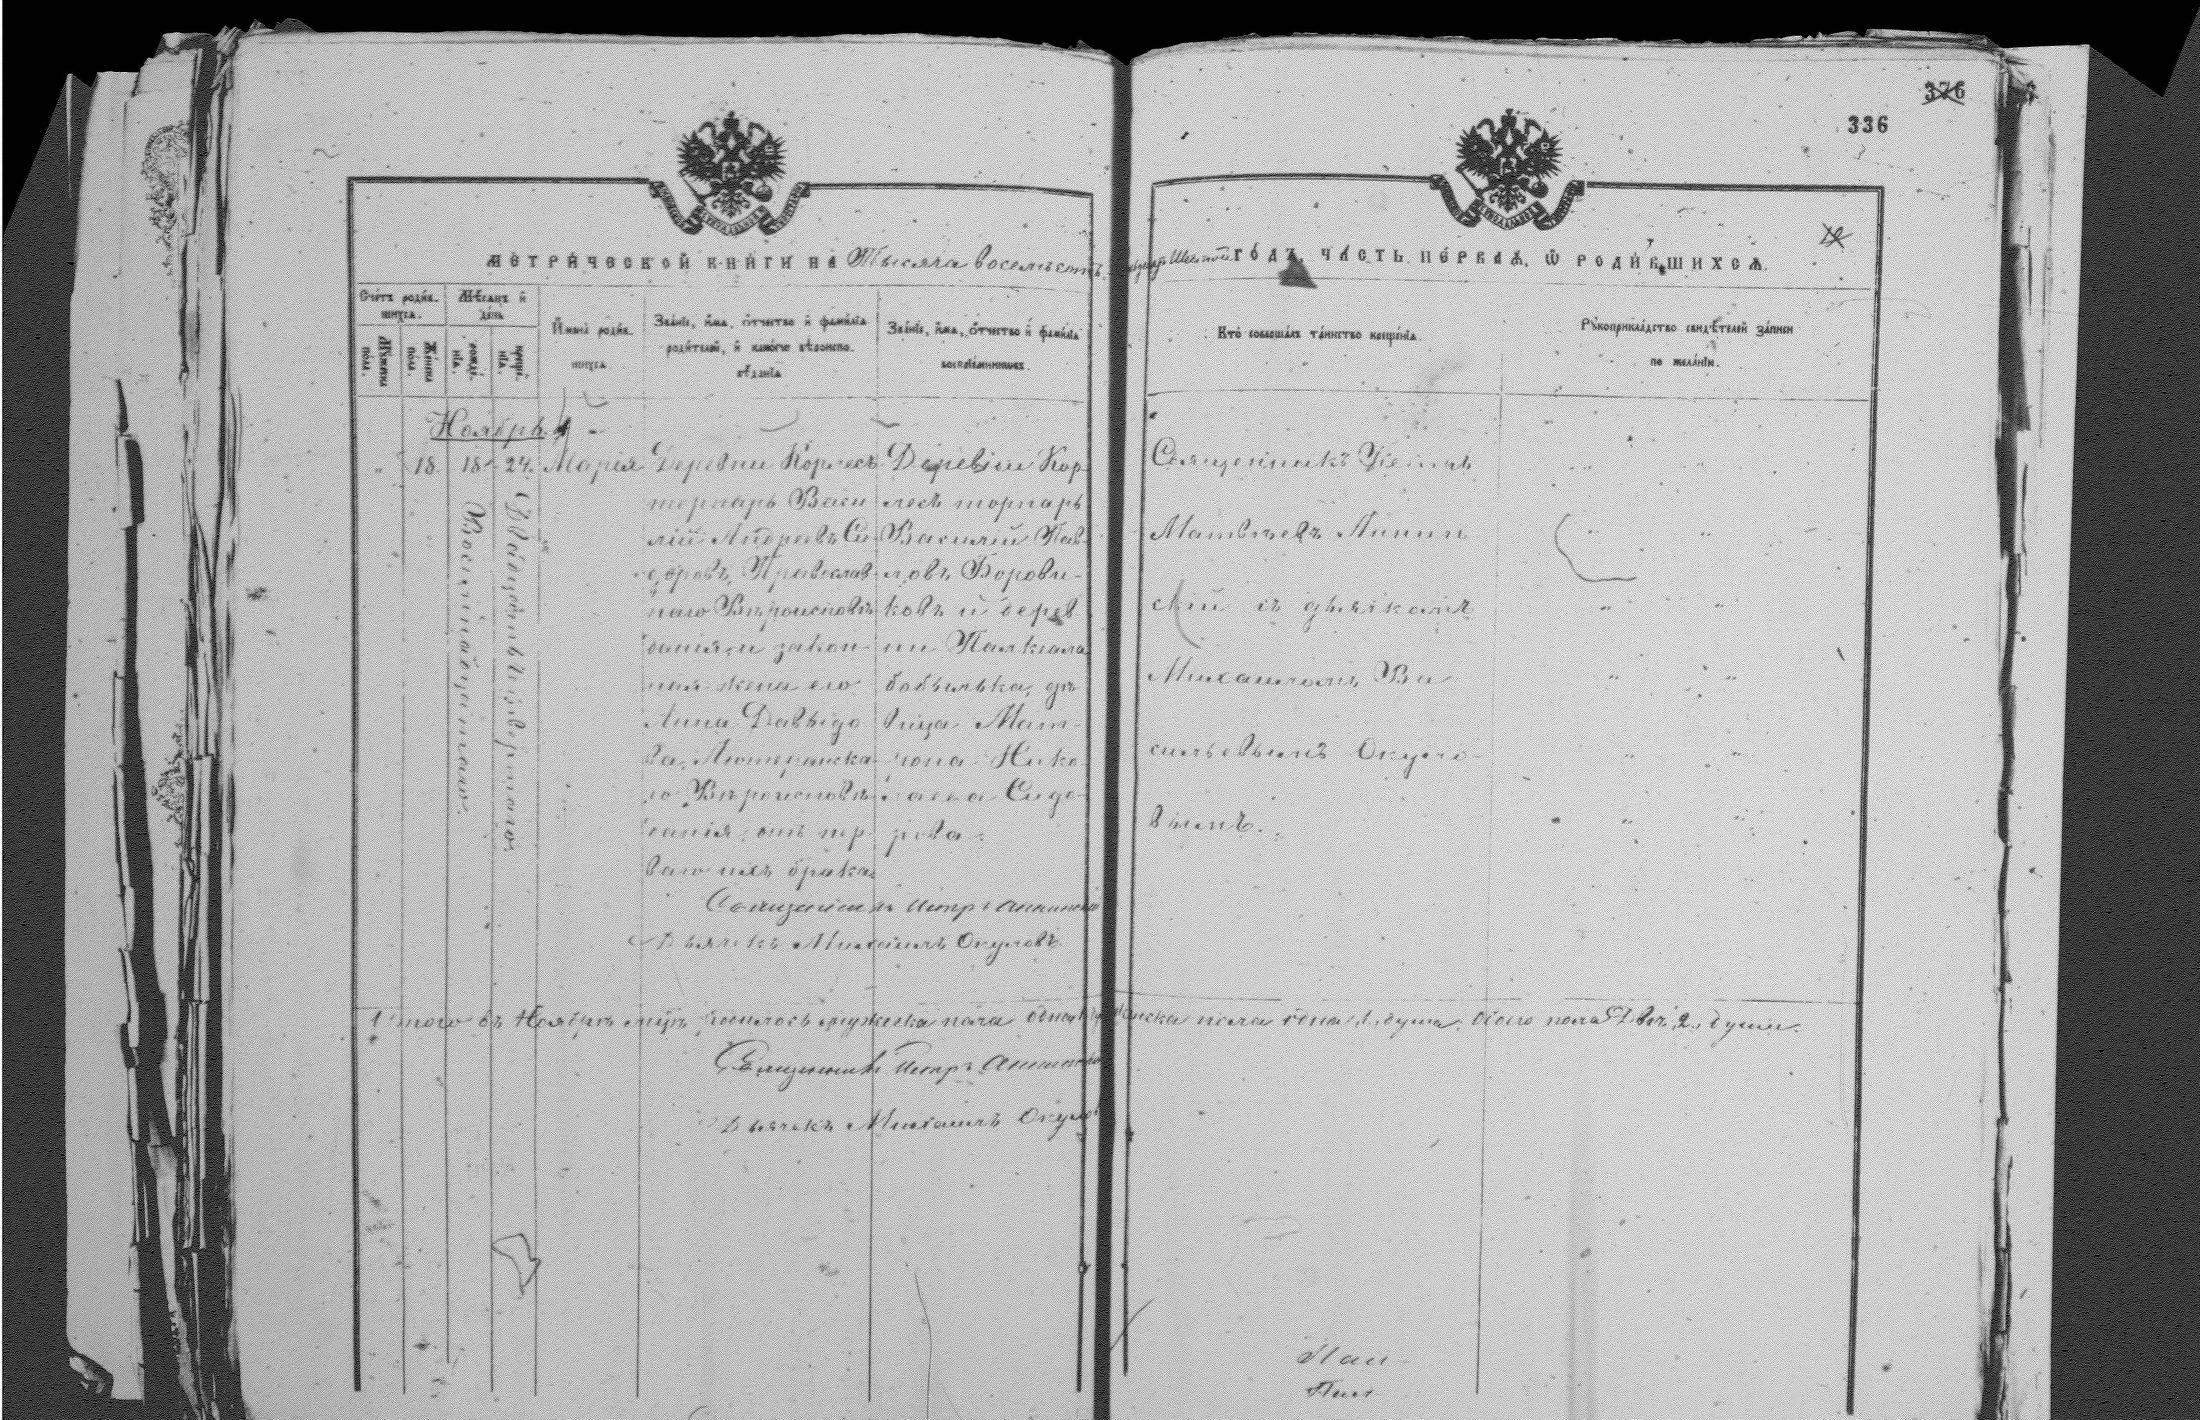 376
336
МЕТРИЧЕСКОЙ КНИГИ НА Тысяча восемьсотъ Шестой ГОДЪ, ЧАСТЬ ПЕРВАЯ, Ѿ РОДИВШИХСЯ.
Счетъ родив-
шихся.
Мужеска
пола.
Женска
пола.
Мѣсяцъ и
день
рожде-
нія.
креще-
нія.
Имена родив-
шихся
Званіе, имя, отчество и фамилія
родителей, и какого вѣроиспо-
вѣданія
Званіе, имя, отчество и фамилія
воспріемниковъ.
Кто совершалъ таинство крещенія.
Рукоприкладство свидѣтелей записи
по желанію.
Ноябрь
" 18. 18. 24. Марія
Восемнадцатаго.
Двадцать четвертаго.
Деревни Корлесъ
торпарь Васи
лій Андреевъ Си
доровъ, Православ
наго Вѣроисповѣ
данія, и закон-
ная жена его
Анна Давыдо
ва, Лютеранска
го Вѣроисповѣ
данія, отъ пер
ваго ихъ брака.
Деревни Кор
лесъ торпарь
Василій Пав
ловъ Борови-
ковъ и дерев
ни Палкиала
бобылька, дѣ
вица Мат-
рона Нико
лаева Сидо
рова.
Священникъ Петръ
Матвѣевъ Аннин
скій съ дьячкомъ
Михаиломъ Ва
сильевымъ Окуло-
вымъ.
Священникъ Петръ Аннинскій
Дьячекъ Михаилъ Окуловъ
Итого въ Ноябрѣ мцѣ родилось мужеска пола одна женска пола одна 1 душа. Обоего пола Двѣ, 2, души.
Священникъ Петръ Аннинскій
Дьячекъ Михаилъ Окулов